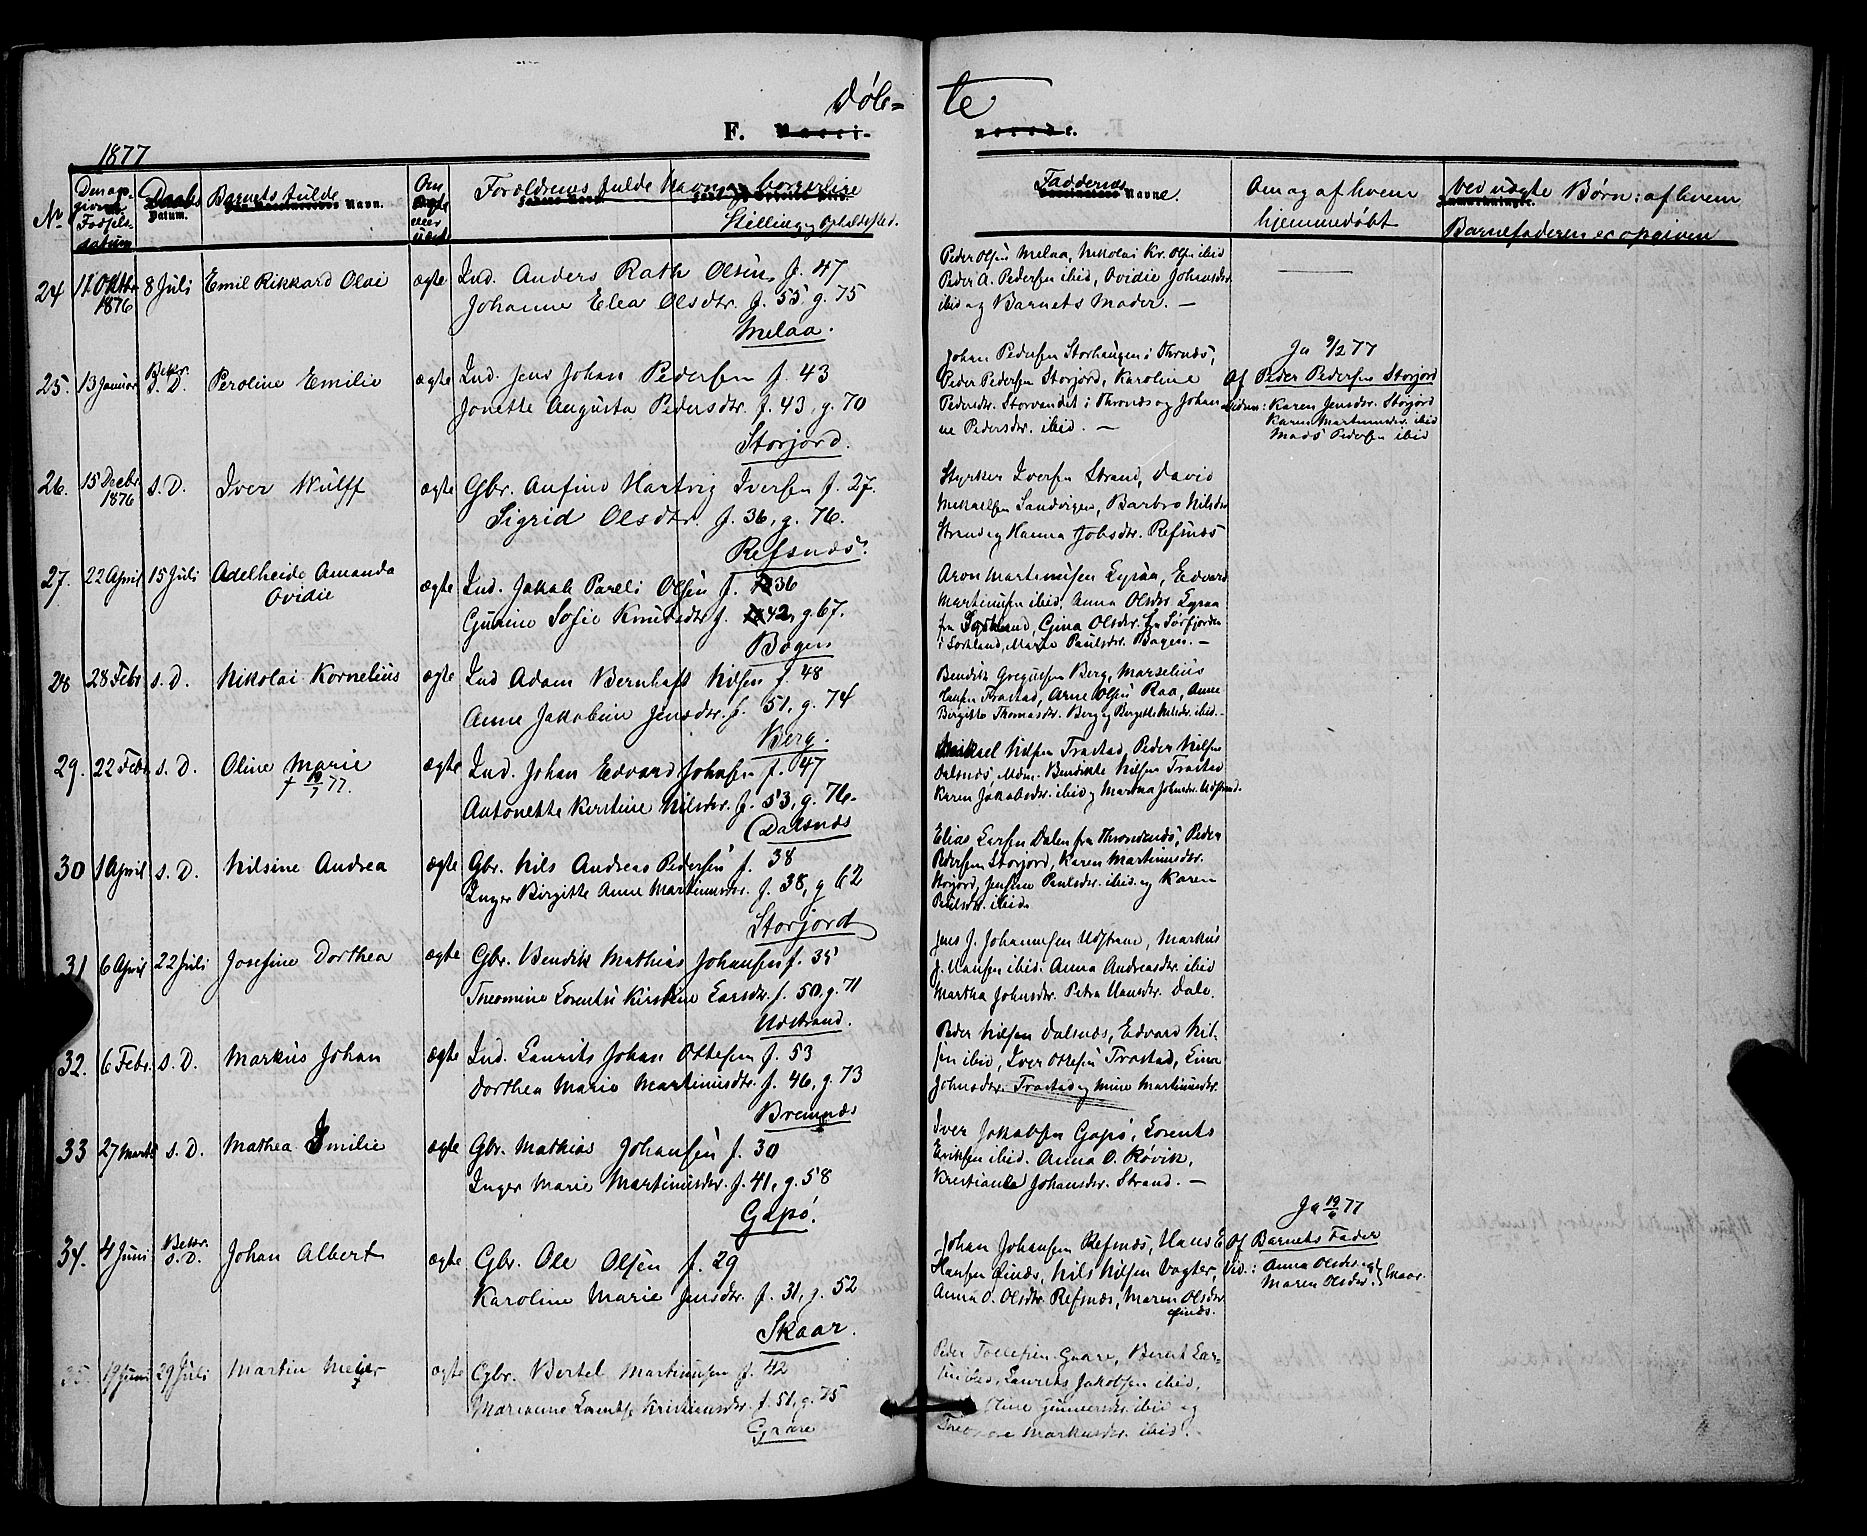 Døb=
te
F. Vacci-
nerede.
1877
No
Den opgivne Fødselsdatum
Daabs Datum.
Barnets fulde Navn.
Om ægte eller uægte
Forældrenes fulde Navn og borgerlige
Stilling og Opholdssted.
Faddernes Navne.
Om og af hvem
hjemmedøbt
Ved uægte Børn: af hvem
Barnefaderen er opgiven
24 11 Oktbr 8 Juli Emil Rikkard Olai ægte Ind. Anders Rath Olsen f. 47
1876 Johanne Elea Olsdtr. f. 55 g. 75
Melaa.
Peder Olsen Melaa, Nikolai Kr. Olsen ibid
Peder A. Pedersen ibid, Ovidie Johnsdtr.
ibid og Barnets Moder. —
25. 13 Januar Bekr. s. D. Peroline Emilie ægte Ind. Jens Johan Pedersen f. 43
Jonette Augusta Pedersdtr. f. 43, g. 70
Storjord.
Johan Pedersen Storhaugen i Thrnæs,
Peder Pedersen Storjord, Karoline
Pedersdtr. Storvandet i Thrnæs og Johan
ne Pedersdtr. ibid. —
Ja 9/2 77
Af Peder Pedersen Storjord
Vidner: Karen Jensdtr. Storjord
Karen Martinusdtr. ibid
Mads Pedersen ibid
26. 15 Decbr 1876 s. D. Iver Wulff ægte Gbr. Anfind Hartvig Iversen f. 27.
Sigrid Olsdtr. f. 36, g. 76.
Refsnæs.
Styrker Iversen Strand, David
Mikaelsen Sandvigen, Barbro Nilsdtr
Strand og Hanna Jobsdtr. Refsnæs
27. 22 April 15 Juli Adelheide Amanda
Ovidie
ægte Ind. Jakob Pareli Olsen f. 36
Gurine Sofie Knudsdtr f. 42, g 67.
Bogen
Aron Martinusen Lysaa, Edvard
Martinusen ibid, Anna Olsdtr Lysaa
fra Sortland, Gina Olsdtr. fra Sørfjorden
i Sortland, Marie Paulsdtr. Bogen. —
28 28 Febr s. D. Nikolai Kornelius ægte Ind Adam Bernhoft Nilsen f. 48
Anne Jakobine Jensdtr. f. 51, g. 74
Berg.
Bendik Gregusen Berg, Marselius
Hansen Trastad, Arne Olsen Raa, Anne
Birgitte Thomasdtr. Berg og Bergitte Nilsdtr. ibid. —
29. 22 Febr s. D. Oline Marie ægte Ind. Johan Edvard Johnsen f. 47
† 19/7 77.
Antonette Kerstine Nilsdtr. f. 53, g. 76.
Dalsnæs
Mikael Nilsen Trastad, Peder Nilsen
Dalsnæs, Mdm. Bendikte Nilsen Trastad
Karen Jakobsdtr. ibid og Martha Johnsdtr. Udstrand.
30 1 April s. D. Nilsine Andrea ægte Gbr. Nils Andreas Pedersen f. 38
Inger Birgitte Anne Martinusdtr. f. 38, g 62
Storjord
Elias Larsen Dalen fra Throndenæs, Peder
Pedersen Storjord, Karen Martinusdtr.
Storjord, Jensine Paulsdtr. ibid og Karen
Paulsdtr. ibid.
31 6 April 22 Juli Josefine Dorthea ægte Gbr. Bendik Mathias Johansen f. 35
Theomine Lorentse Kirstine Larsdtr. f. 50, g. 71
Udstrand.
Jens J. Johannesen Udstrand, Markus
J. Hansen ibid. Anna Andreasdtr. ibid
Martha Johnsdtr. Petra Hansdtr. Dale.
32. 6 Febr. s. D. Markus Johan ægte Ind. Laurits Johan Ottesen f. 53
Dorthea Marie Martinusdtr. f. 46, g. 73
Bremnæs
Peder Nilsen Dalsnæs, Edvard Nil-
sen ibid, Iver Ottesen Trastad, Lina
Johnsdtr. Trastad og Mine Martinusdtr.
33 27 Marts s. D. Mathea Emilie ægte Gbr. Mathias Johansen f. 30
Inger Marie Martinusdtr. f. 41, g. 58
Gapø.
Iver Jakobsen Gapø, Lorents
Eriksen ibid. Anna O. Røvik,
Kristiane Johansdtr. Strand. —
34. 4 Juni Bekr. s. D. Johan Albert ægte Gbr. Ole Olsen f. 29
Karoline Marie Jensdtr. f. 31, g. 52
Skaar.
Johan Johansen Refsnæs, Hans E
Hansen Qinæs, Nils Nilsen Vogter,
Anna O. Olsdtr. Refsnæs, Maren Olsdtr
Qinæs.
Ja 19/6 77
Af Barnets Fader
Vid.: Anna Olsdtr. og
Maren Olsdtr. } Skaar.
35. 19 Juni 29 Juli Martin Meier ægte Gbr. Bertel Martinusen f. 42
Marianne Lorentse Kristiansdtr. f. 51, g. 75
Gaare
Peder Tollefsen Gaare, Berent Lar-
sen ibid, Laurits Jakobsen ibid,
Oline Gunnersdtr. ibid og
Markusdtr. ibid.